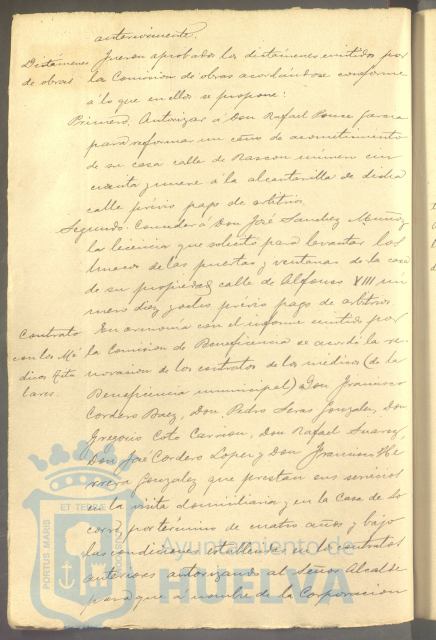 anteriormente.
Dictámenes de obras
Fueron aprobados los dictámenes emitidos por
la Comision de obras acordándose conforme
á lo que en ellos se propone:
Primero. Autorizar á Don Rafael Ponce
para reformar un caño de acometimiento
de su casa calle de Rascon número cin
cuenta y nueve á la alcantarilla de dicha
calle previo pago de arbitrios.
Segundo. Conceder á Don José Sanchez Muñoz
la licencia que solicita para levantar los
huecos de las puertas y ventanas de la casa
de su propiedad calle de Alfonso XIII nú
mero diez y ocho previo pago de arbitrios.
Contrato con los Mé dicos titu lares.
En armonia con el informe emitido por
la Comision de Beneficencia se acordó la re-
novacion de los contratos de los médicos (de la
Beneficencia municipal) Don Francisco
Cordero Baez, Don Pedro Seras Gonzalez, Don
Gregorio Coto Carrion, Don Rafael Suarez,
Don José Cordero Lopez y Don Francisco He
rrera Gonzalez que prestan sus servicios
en la visita domiciliaria y en la Casa de So
corro, por término de cuatro años y bajo
las condiciones establecidas en los contratos
anteriores autorizando al Señor Alcalde
para que á nombre de la Corporacion
PORTUS MARIS ET TERRE
Ayuntamiento de
HUELVA